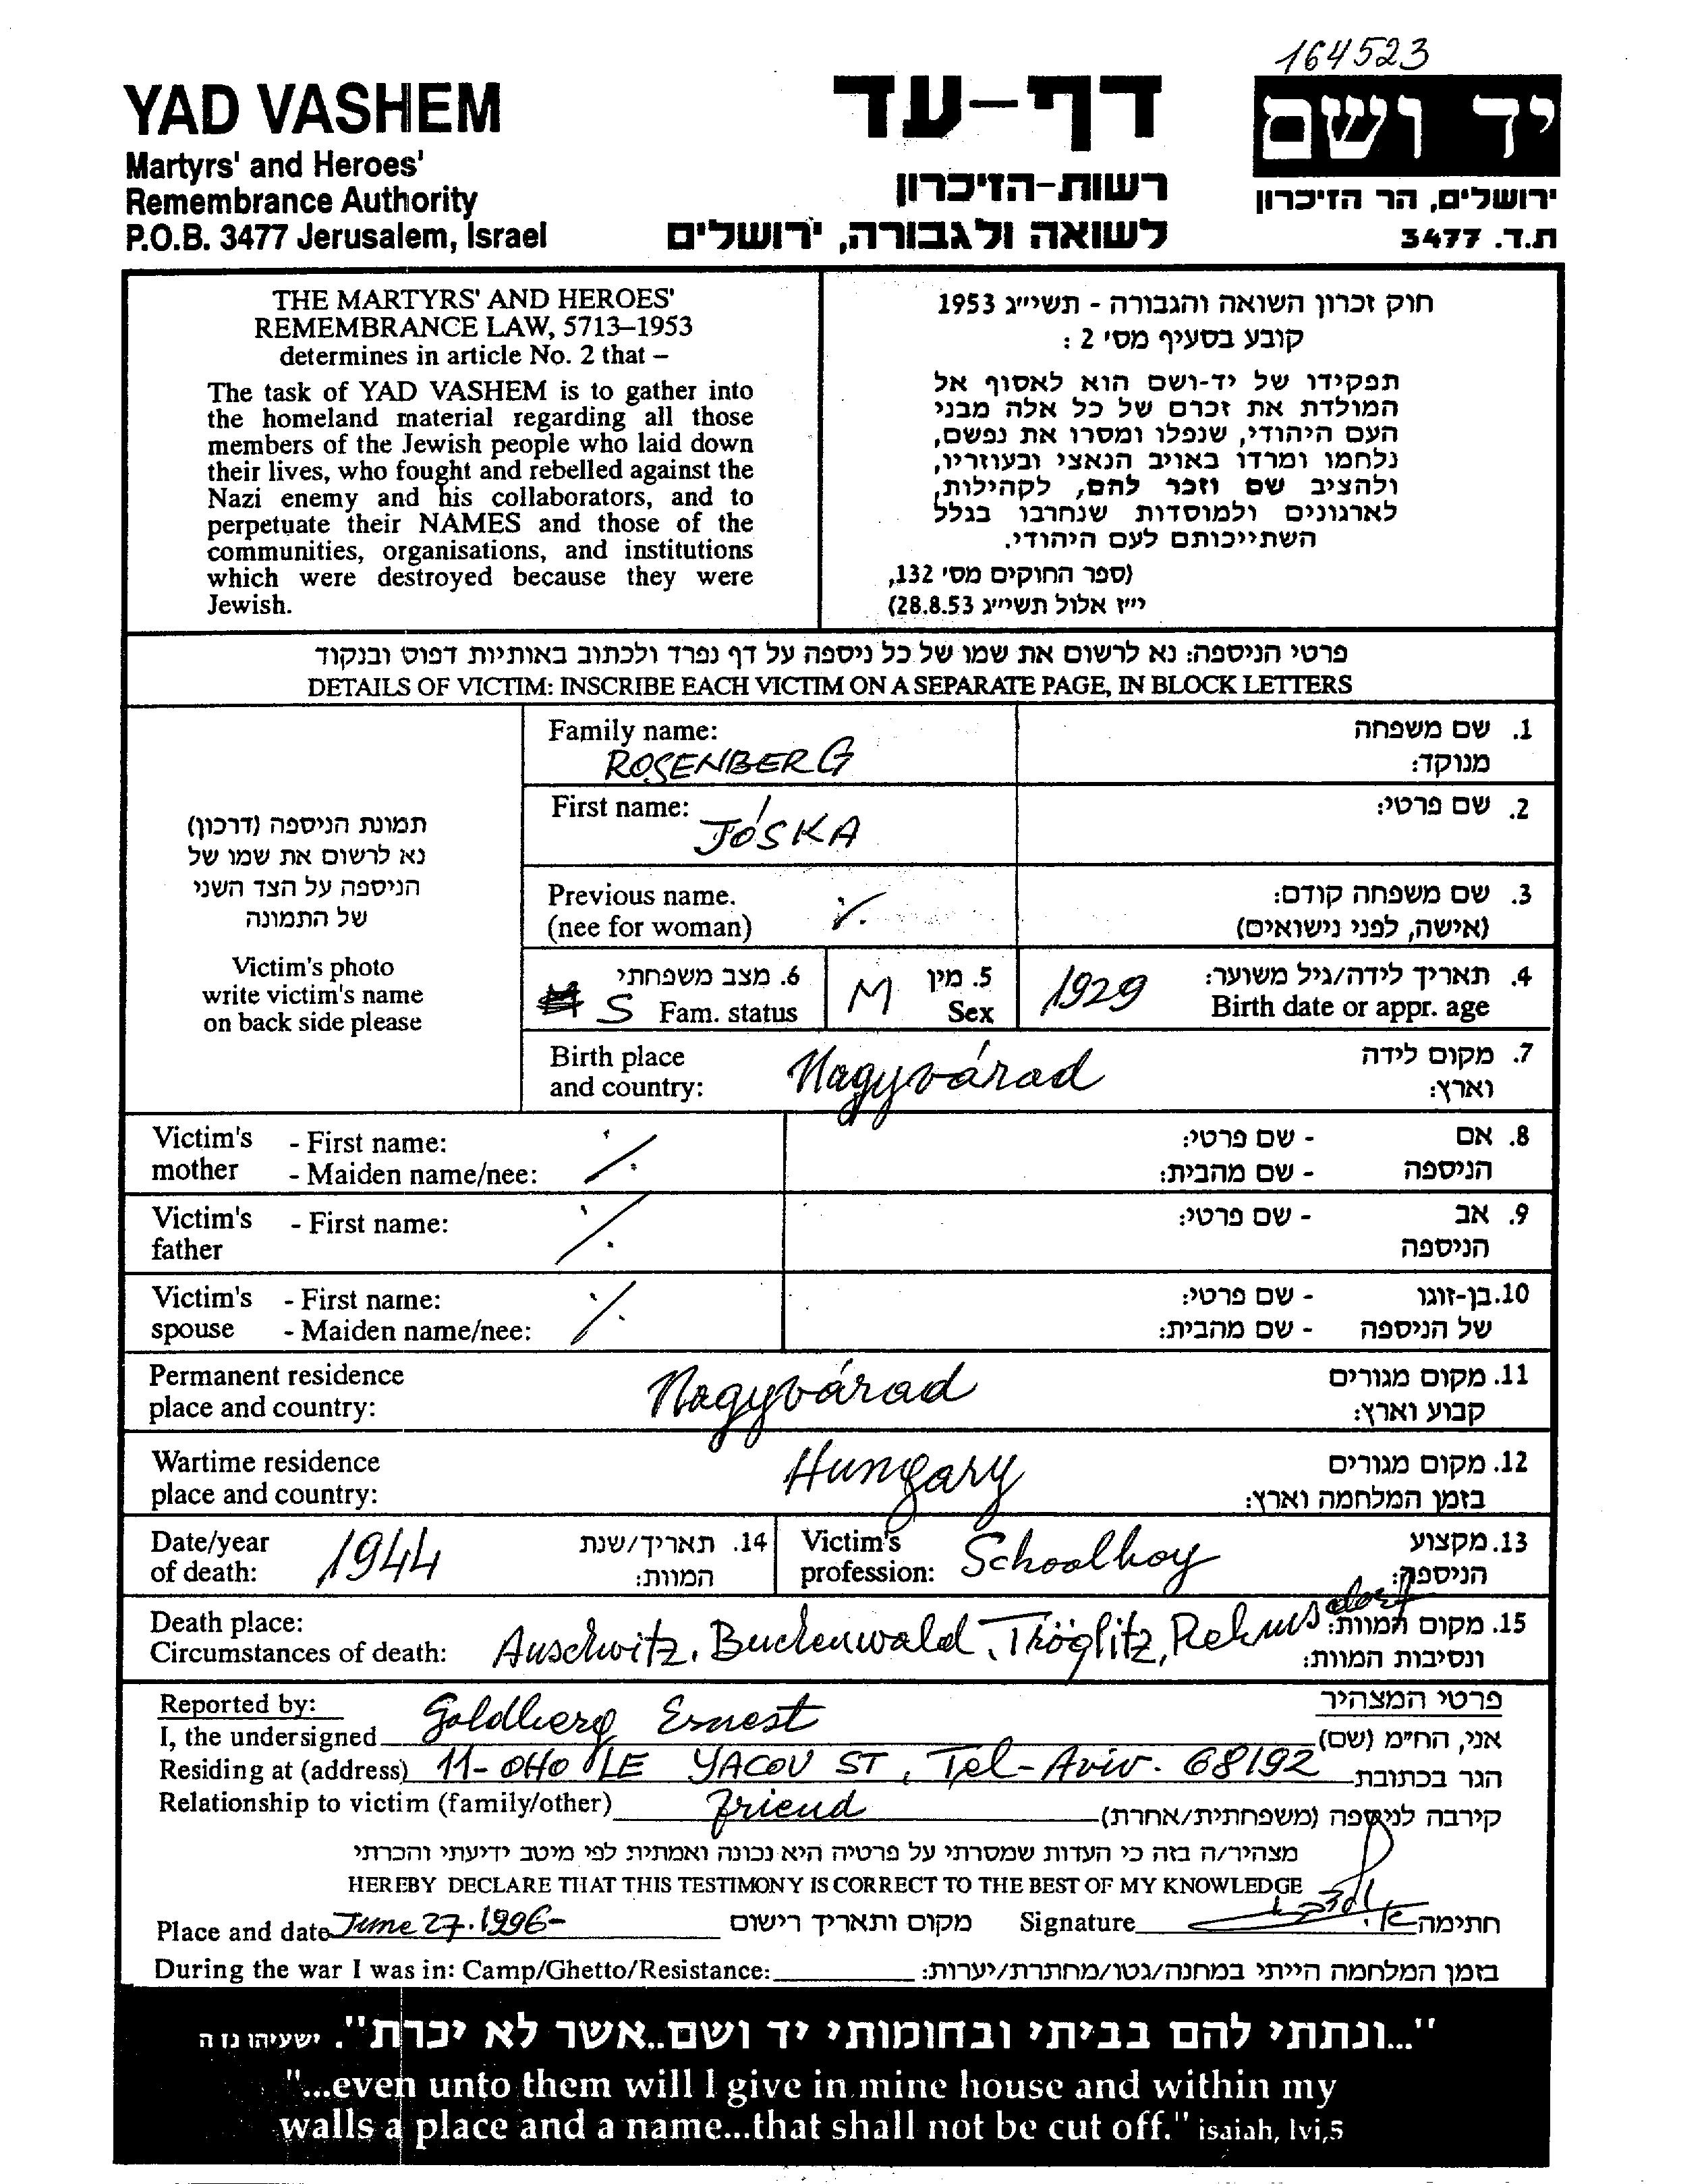 164523
YAD VASHEM
Martyrs' and Heroes'
Remembrance Authority
P.O.B. 3477 Jerusalem, Israel
דף-עד
רשות-הזיכרון
לשואה ולגבורה, ירושלים
יד ושם
ירושלים, הר הזיכרון
ת.ד. 3477
THE MARTYRS' AND HEROES'
REMEMBRANCE LAW, 5713–1953
determines in article No. 2 that –
The task of YAD VASHEM is to gather into
the homeland material regarding all those
members of the Jewish people who laid down
their lives, who fought and rebelled against the
Nazi enemy and his collaborators, and to
perpetuate their NAMES and those of the
communities, organisations, and institutions
which were destroyed because they were
Jewish.
חוק זכרון השואה והגבורה - תשי״ג 1953
קובע בסעיף מס' 2 :
תפקידו של יד-ושם הוא לאסוף אל
המולדת את זכרם של כל אלה מבני
העם היהודי, שנפלו ומסרו את נפשם,
נלחמו ומרדו באויב הנאצי ובעוזריו,
ולהציב שם וזכר להם, לקהילות,
לארגונים ולמוסדות שנחרבו בגלל
השתייכותם לעם היהודי.
(ספר החוקים מס' 132,
י״ז אלול תשי״ג 28.8.53)
פרטי הניספה: נא לרשום את שמו של כל ניספה על דף נפרד ולכתוב באותיות דפוס ובנקוד
DETAILS OF VICTIM: INSCRIBE EACH VICTIM ON A SEPARATE PAGE, IN BLOCK LETTERS
תמונת הניספה (דרכון)
נא לרשום את שמו של
הניספה על הצד השני
של התמונה
Victim's photo
write victim's name
on back side please
Family name:
ROSENBERG
1. שם משפחה
מנוקד:
First name: JÓSKA
2. שם פרטי:
Previous name.
(nee for woman) ·/.
3. שם משפחה קודם:
(אישה, לפני נישואים)
6. מצב משפחתי
S Fam. status
5. מין
M Sex
1929
4. תאריך לידה/גיל משוער:
Birth date or appr. age
Birth place
and country: Nagyvárad
7. מקום לידה
וארץ:
Victim's - First name:
mother - Maiden name/nee: ·/.
8. אם - שם פרטי:
הניספה - שם מהבית:
Victim's - First name: ·/.
father
9. אב - שם פרטי:
הניספה
Victim's - First name: ·/.
spouse - Maiden name/nee:
10. בן-זוגו - שם פרטי:
של הניספה - שם מהבית:
Permanent residence
place and country: Nagyvárad
11. מקום מגורים
קבוע וארץ:
Wartime residence
place and country: Hungary
12. מקום מגורים
בזמן המלחמה וארץ:
Date/year
of death: 1944
14. תאריך/שנת
המוות:
Victim's
profession: Schoolboy
13. מקצוע
הניספה:
Death place:
Circumstances of death: Auschwitz, Buchenwald, Tröglitz, Rehmsdorf
15. מקום המוות:
ונסיבות המוות:
Reported by:
פרטי המצהיר
I, the undersigned Goldberg Ernest אני, הח״מ (שם)
Residing at (address) 11- OHOLE YACOV ST, Tel-Aviv. 68192 הגר בכתובת
Relationship to victim (family/other) friend קירבה לניספה (משפחתית/אחרת)
מצהיר/ה בזה כי העדות שמסרתי על פרטיה היא נכונה ואמתית לפי מיטב ידיעתי והכרתי
HEREBY DECLARE THAT THIS TESTIMONY IS CORRECT TO THE BEST OF MY KNOWLEDGE
Place and date June 27.1996- מקום ותאריך רישום Signature חתימה
During the war I was in: Camp/Ghetto/Resistance: בזמן המלחמה הייתי במחנה/גטו/מחתרת/יערות:
"...ונתתי להם בביתי ובחומותי יד ושם..אשר לא יכרת". ישעיהו נו ה
"...even unto them will I give in mine house and within my
walls a place and a name...that shall not be cut off." isaiah, lvi,5